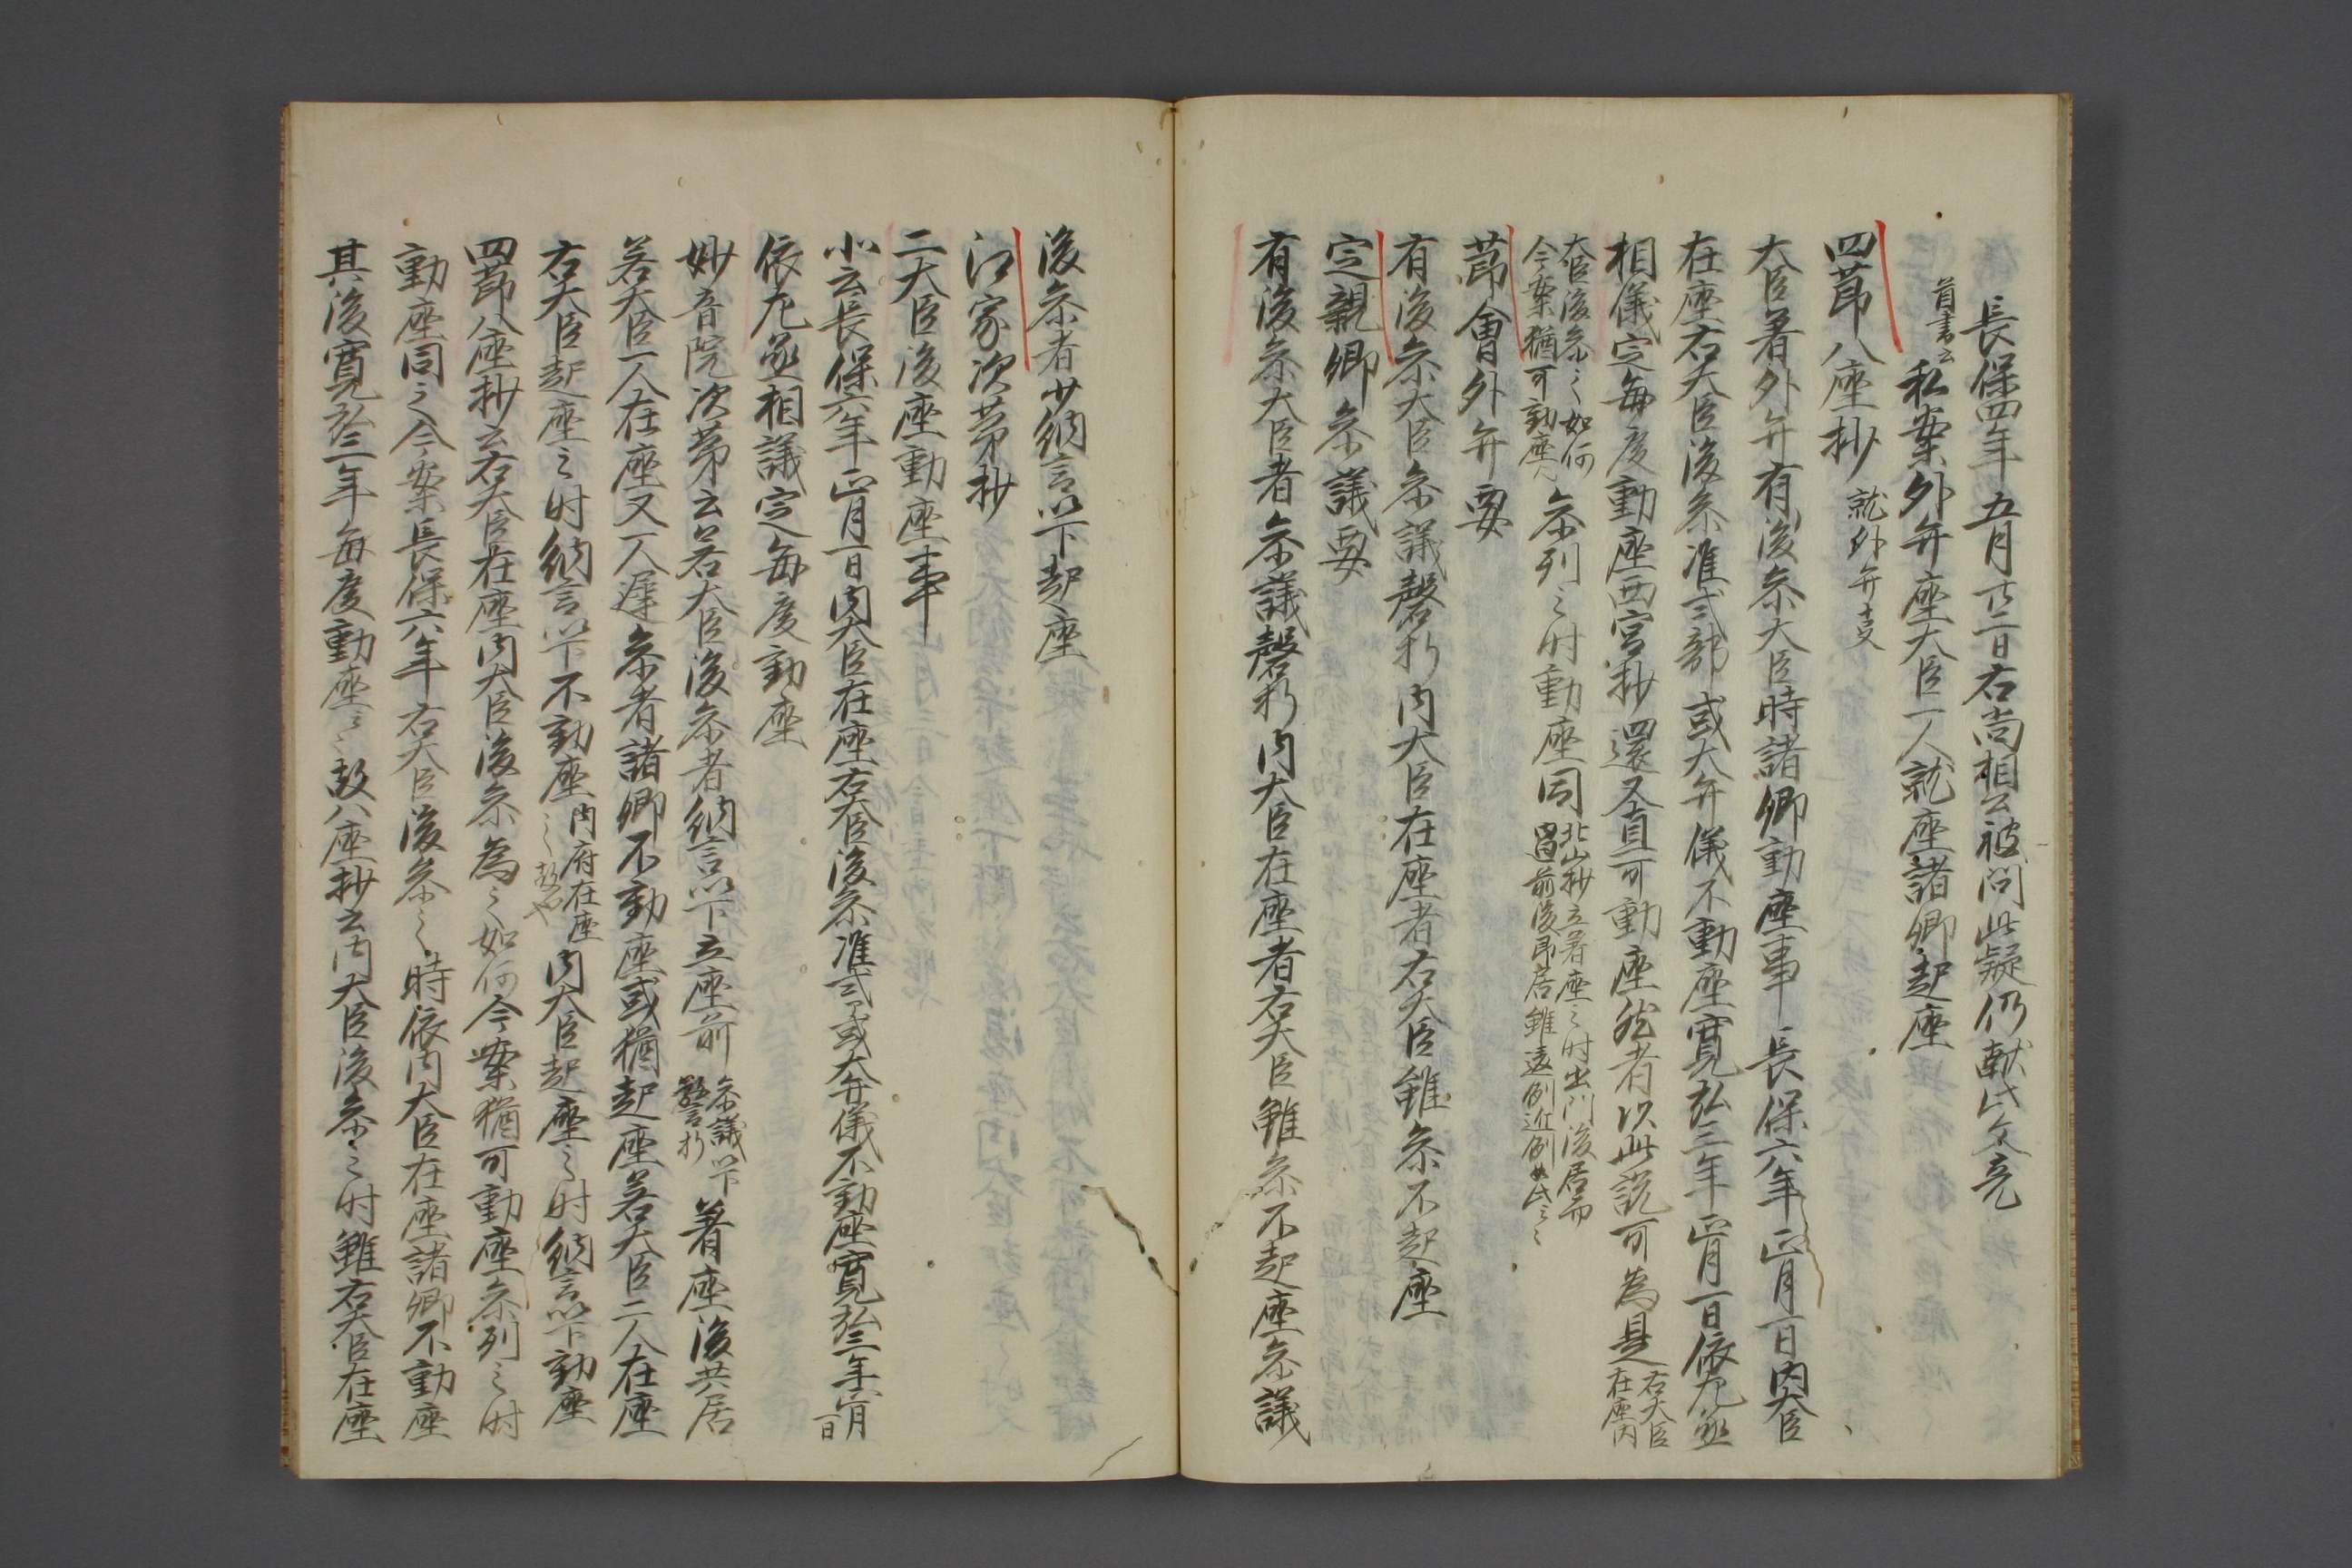 長保四年五月廿二日右尚相公被問此疑仍献此文亮
首書云私案外弁座大臣一人就座諸卿起座
四節八座抄 就外弁事
大臣著外弁有後参大臣時諸卿動座事 長保六年正月一日内大臣
在座右大臣後参准式部或大弁儀不動座寛弘三年正月一日依左丞
相儀定毎度動座西宮抄還又直可動座然者以此説可為是右大臣在座内
大臣後参之如何今案猶可動座参列之時動座同北山抄立著座之時出門後居而
節會外弁要
有後参大臣参議磬折内大臣在座者右大臣雖参不起座
定親卿参議要
有後参大臣者参議磬折内大臣在座者右大臣雖参不起座参議
後参者少納言以下起座
江家次第抄
二大臣後座動座事
小云長保六年正月一日内大臣在座右大臣後参准式或大弁儀不動座寛弘三年正月一日
依左丞相議定毎度動座
妙音院次第云若大臣後参者納言以下立座前参議以下磬折著座後共居
若大臣一人在座又一人遅参者諸卿不動座或猶起座若大臣二人在座
右大臣起座之時納言以下不動座内府在座之故也内大臣起座之時納言以下動座
四節八座抄云右大臣在座内大臣後参為之如何今案猶可動座参列之時
動座同之今案長保六年右大臣後参之時依内大臣在座諸卿不動座
其後寛弘三年毎度動座云々故八座抄云内大臣後参之時雖右大臣在座